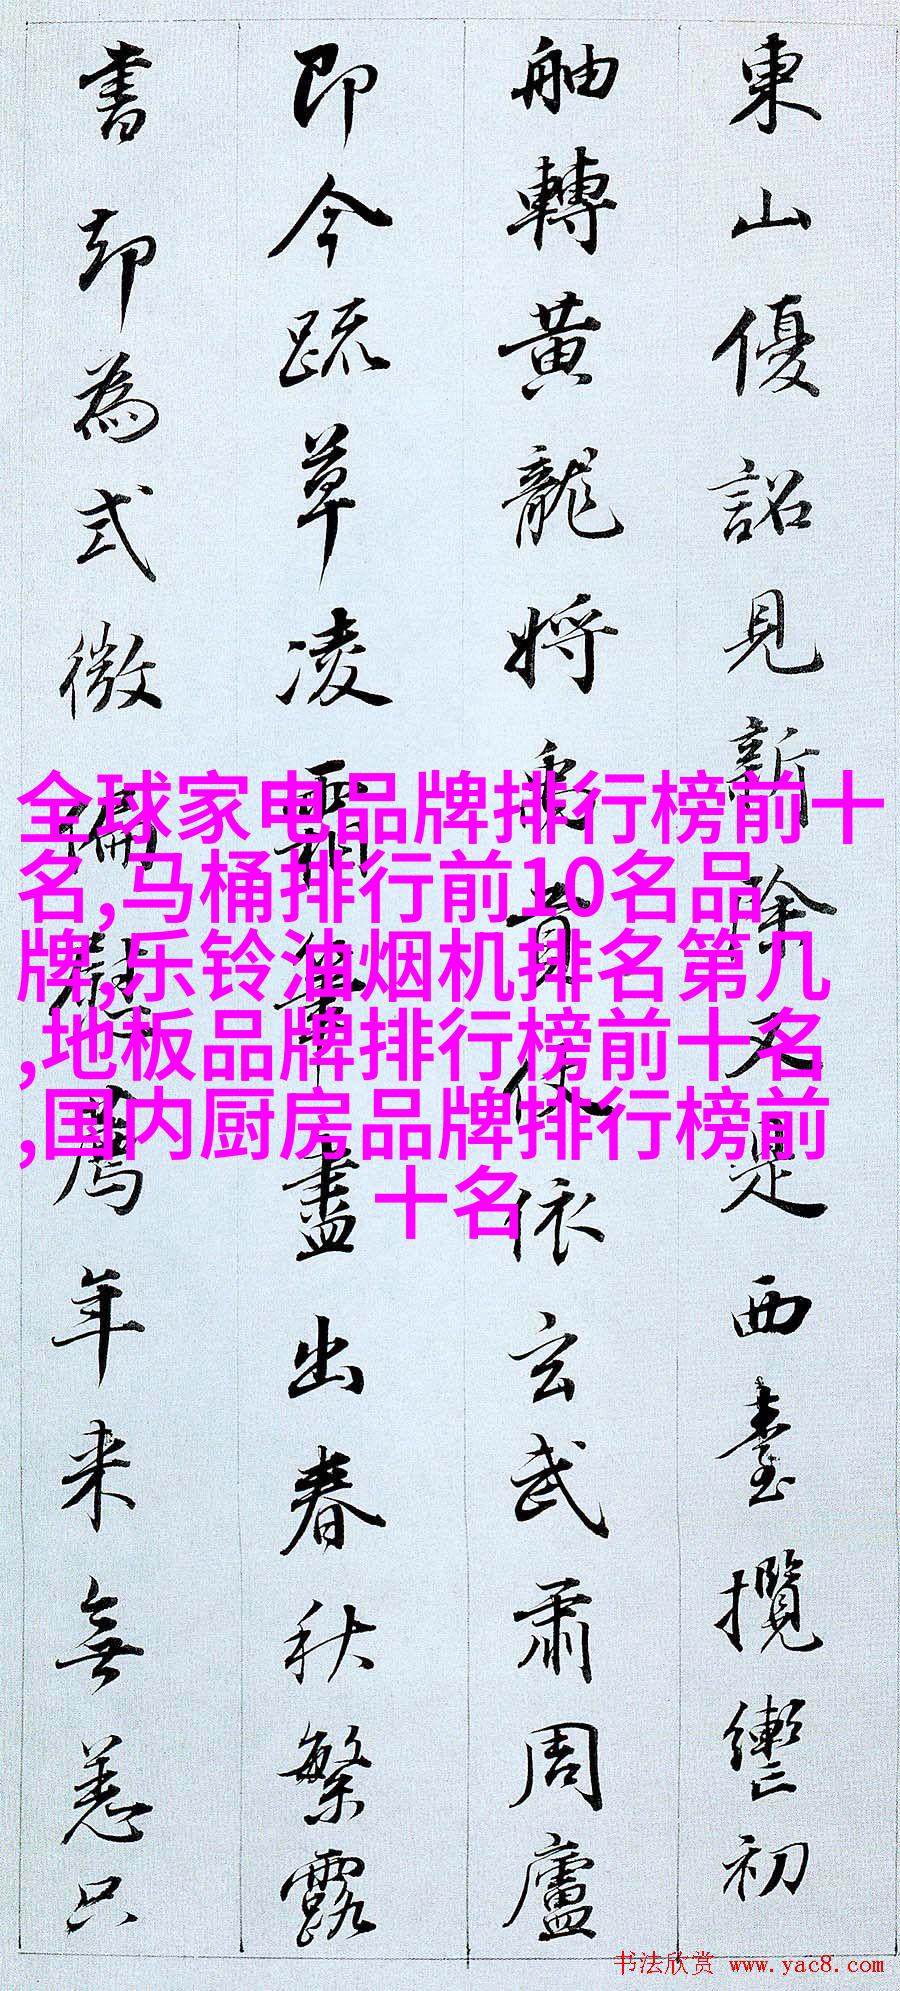 東山優詔見新除又是西臺攬轡初
舳轉黃龍將虎賁仗依玄武肅周廬
即今疏草凌霜筆盡出春秋繁露
書却為式微偏慰薦年来無恙只
全球家电品牌排行榜前十
名,马桶排行前10名品
牌,乐铃油烟机排名第几
,地板品牌排行榜前十名
,国内厨房品牌排行榜前
十名
书法欣赏 www.yac8.com